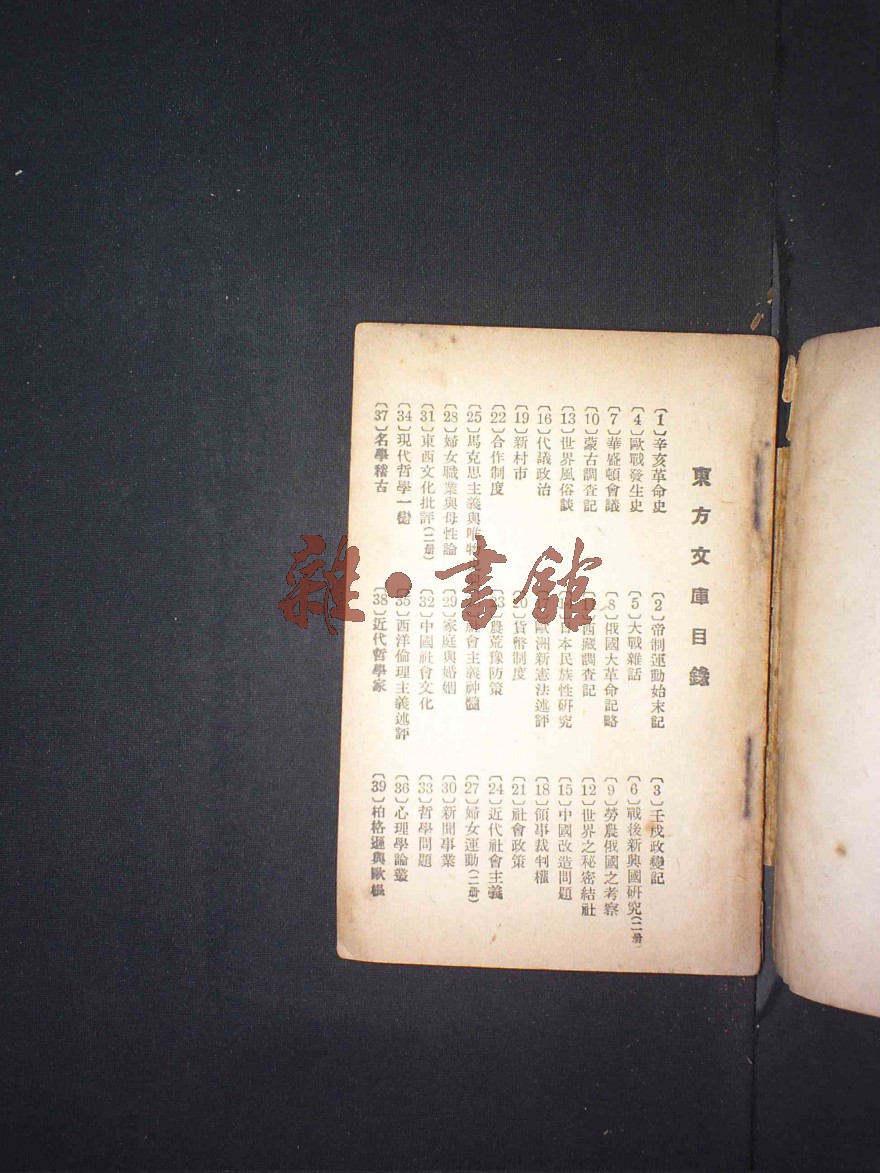 東方文庫目錄
〔1〕辛亥革命史
〔2〕帝制運動始末記
〔3〕壬戌政變記
〔4〕歐戰發生史
〔5〕大戰雜話
〔6〕戰後新興國研究(二冊)
〔7〕華盛頓會議
〔8〕俄國大革命記略
〔9〕勞農俄國之考察
〔10〕蒙古調查記
西藏調查記
〔12〕世界之秘密結社
〔13〕世界風俗談
日本民族性研究
〔15〕中國改造問題
〔16〕代議政治
歐洲新憲法述評
〔18〕領事裁判權
〔19〕新村市
〔20〕貨幣制度
〔21〕社會政策
〔22〕合作制度
農荒豫防策
〔24〕近代社會主義
〔25〕馬克思主義與唯物
社會主義神髓
〔27〕婦女運動(二冊)
〔28〕婦女職業與母性論
〔29〕家庭與婚姻
〔30〕新聞事業
〔31〕東西文化批評(二冊)
〔32〕中國社會文化
〔33〕哲學問題
〔34〕現代哲學一臠
〔35〕西洋倫理主義述評
〔36〕心理學論叢
〔37〕名學稽古
〔38〕近代哲學家
〔39〕柏格遜與歐根
雜·書館